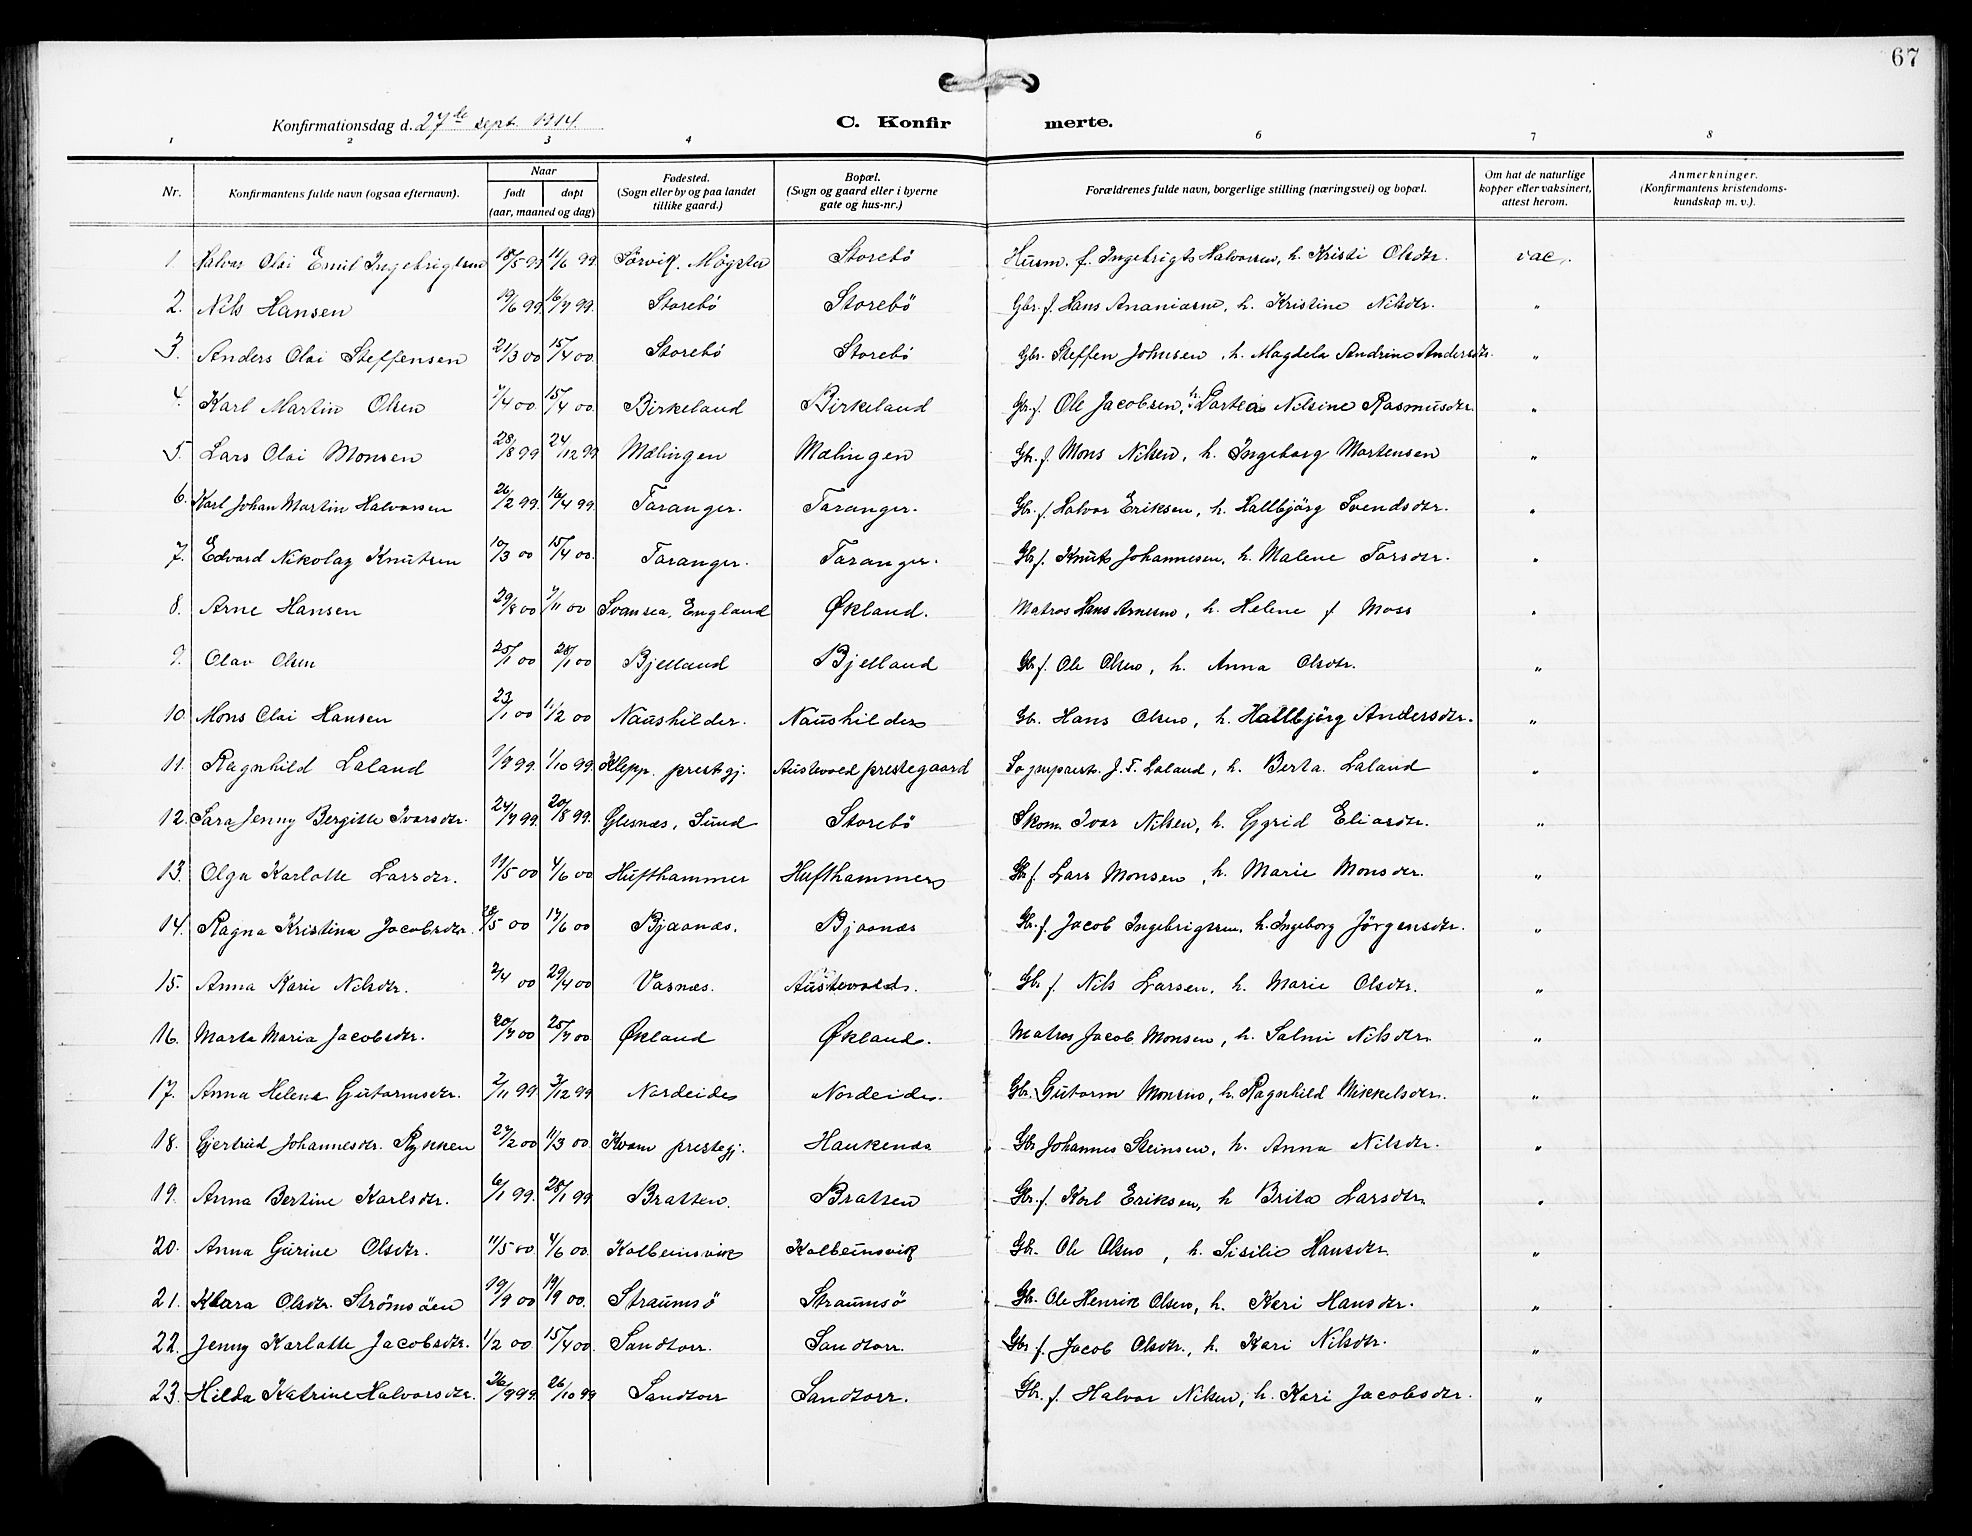 67
Konfirmationsdag d. 27de sept. 1914.
C. Konfirmerte.
1 2 3 4 5 6 7 8
Nr. Konfirmantens fulde navn (ogsaa efternavn). Naar født døpt (aar, maaned og dag) Fødested. (Sogn eller by og paa landet tillike gaard.) Bopæl. (Sogn og gaard eller i byerne gate og hus-nr.) Forældrenes fulde navn, borgerlige stilling (næringsvei) og bopæl. Om hat de naturlige kopper efter vaksinert, attest herom. Anmerkninger. (Konfirmantens kristendomskundskap m. v.).
1. Halvor Olai Emil Ingebrigtsen 18/5 99 11/6 99 Sörvik. Møgster Storebö Husm. f. Ingebrigt Halvorsen, h. Kristi Olsdtr. vac.
2. Nils Hansen 19/6 99 16/7 99. Storebö Storebö Gbr. f. Hans Ananiasen, h. Kristine Nilsdtr. "
3. Anders Olai Steffensen 21/3 00 15/4 00. Storebö Storebö Gbr. Steffen Johnsen, h. Magdela Andrine Andersdtr. "
4. Karl Martin Olsen 7/4 00. 15/4 00. Birkeland Birkeland Gbr. f. Ole Jacobsen, h. Dortea Nilsine Rasmusdtr. "
5. Lars Olai Monsen 28/8 99 24/12 99 Mælingen Mælingen Gbr. f. Mons Nilsen, h. Ingeborg Mortensen "
6. Karl Johan Martin Halvorsen 26/2 99. 16/4 99. Taranger. Taranger. Gbr. f. Halvor Eriksen, h. Hallbjörg Svendsdtr. "
7. Edvard Nikolay Knutsen 10/3 00 15/4 00. Taranger. Taranger. Gbr. f. Knut Johannesen, h. Malene Larsdtr. "
8. Arne Hansen 29/8 00 7/11 00 Svansea, England Økland. Matros Hans Arnesen, h. Helene f Moss "
9. Olav Olsen 25/1 00 28/1 00 Bjelland Bjelland Gbr. f. Ole Olsen, h. Anna Olsdtr. "
10. Mons Olai Hansen 23/1 00 11/2 00 Naushilder. Naushilder Gbr. Hans Olsen, h. Hallbjörg Andersdtr. "
11. Ragnhild Laland 1/9 99. 1/10 99. Klepp. prestgj. Austevold prestegaard Sogneprest. J. T. Laland, h. Berta Laland "
12. Sara Jenny Bergitte Ivarsdtr. 24/7 99 20/8 99. Glesnæs, Sund Storebö Skom. Ivar Nilsen, h. Gyrid Eliasdtr. "
13. Olga Karlotte Larsdtr. 11/5 00 4/6 00 Hufthammer Hufthammer Gbr. f. Lars Monsen, h. Marie Monsdtr. "
14. Ragna Kristina Jacobsdtr. 28/5 00 17/6 00 Bjaanæs. Bjaanæs Gbr. f. Jacob Ingebrigtsen, h. Ingeborg Jörgensdtr. "
15. Anna Karie Nilsdtr. 2/4 00 29/4 00 Vasnæs. Austevold. Gbr. f. Nils Larsen, h. Marie Olsdtr. "
16. Marta Maria Jacobsdtr. 20/7 00 25/7 00 Økland Økland. Matros Jacob Monsen, h. Salmi Nilsdtr. "
17. Anna Helene Gutormsdtr. 2/11 99 3/12 99 Nordeide Nordeide. Gbr. Gutorm Monsen, h. Ragnhild Mikkelsdtr. "
18. Gjertrud Johannesdtr. Rykken 27/2 00 11/3 00 Kvam prestegj. Haukenæs Gbr Johannes Steinsen, h. Anna Nilsdtr. "
19. Anna Bertine Karlsdtr. 6/1 99. 28/1 99 Bratten. Bratten Gbr. f. Karl Eriksen, h Brita Larsdtr. "
20. Anna Gurine Olsdtr. 11/5 00 4/6 00 Kolbeinsvik Kolbeinsvik Gbr. Ole Olsen, h. Sisilie Hansdtr. "
21. Klara Olsdtr. Strömsöen 19/9 00 19/9 00. Straumsö Straumsö Gbr. Ole Henrik Olsen, h. Kari Hansdtr. "
22. Jenny Karlotte Jacobsdtr. 1/2 00 15/4 00. Sandtorr. Sandtorr. Gbr. f. Jacob Olsdtr., h. Kari Nilsdtr. "
23. Hilda Katrine Halvorsdtr. 26/9 99. 26/10 99 Sandtorr Sandtorr. Gbr. f. Halvor Nilsen, h. Kari Jacobsdtr. "